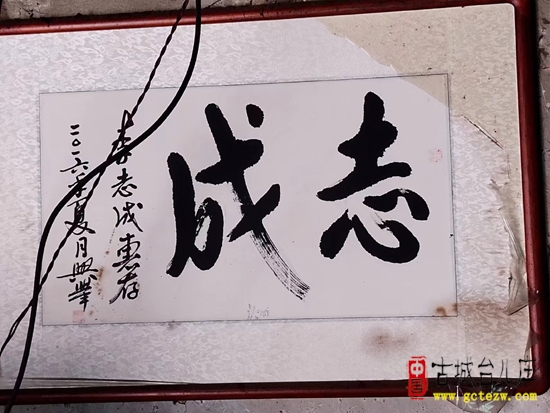 志成
李志成惠存
二〇一六年夏月興業
中国古城台儿庄
www.gctezw.com